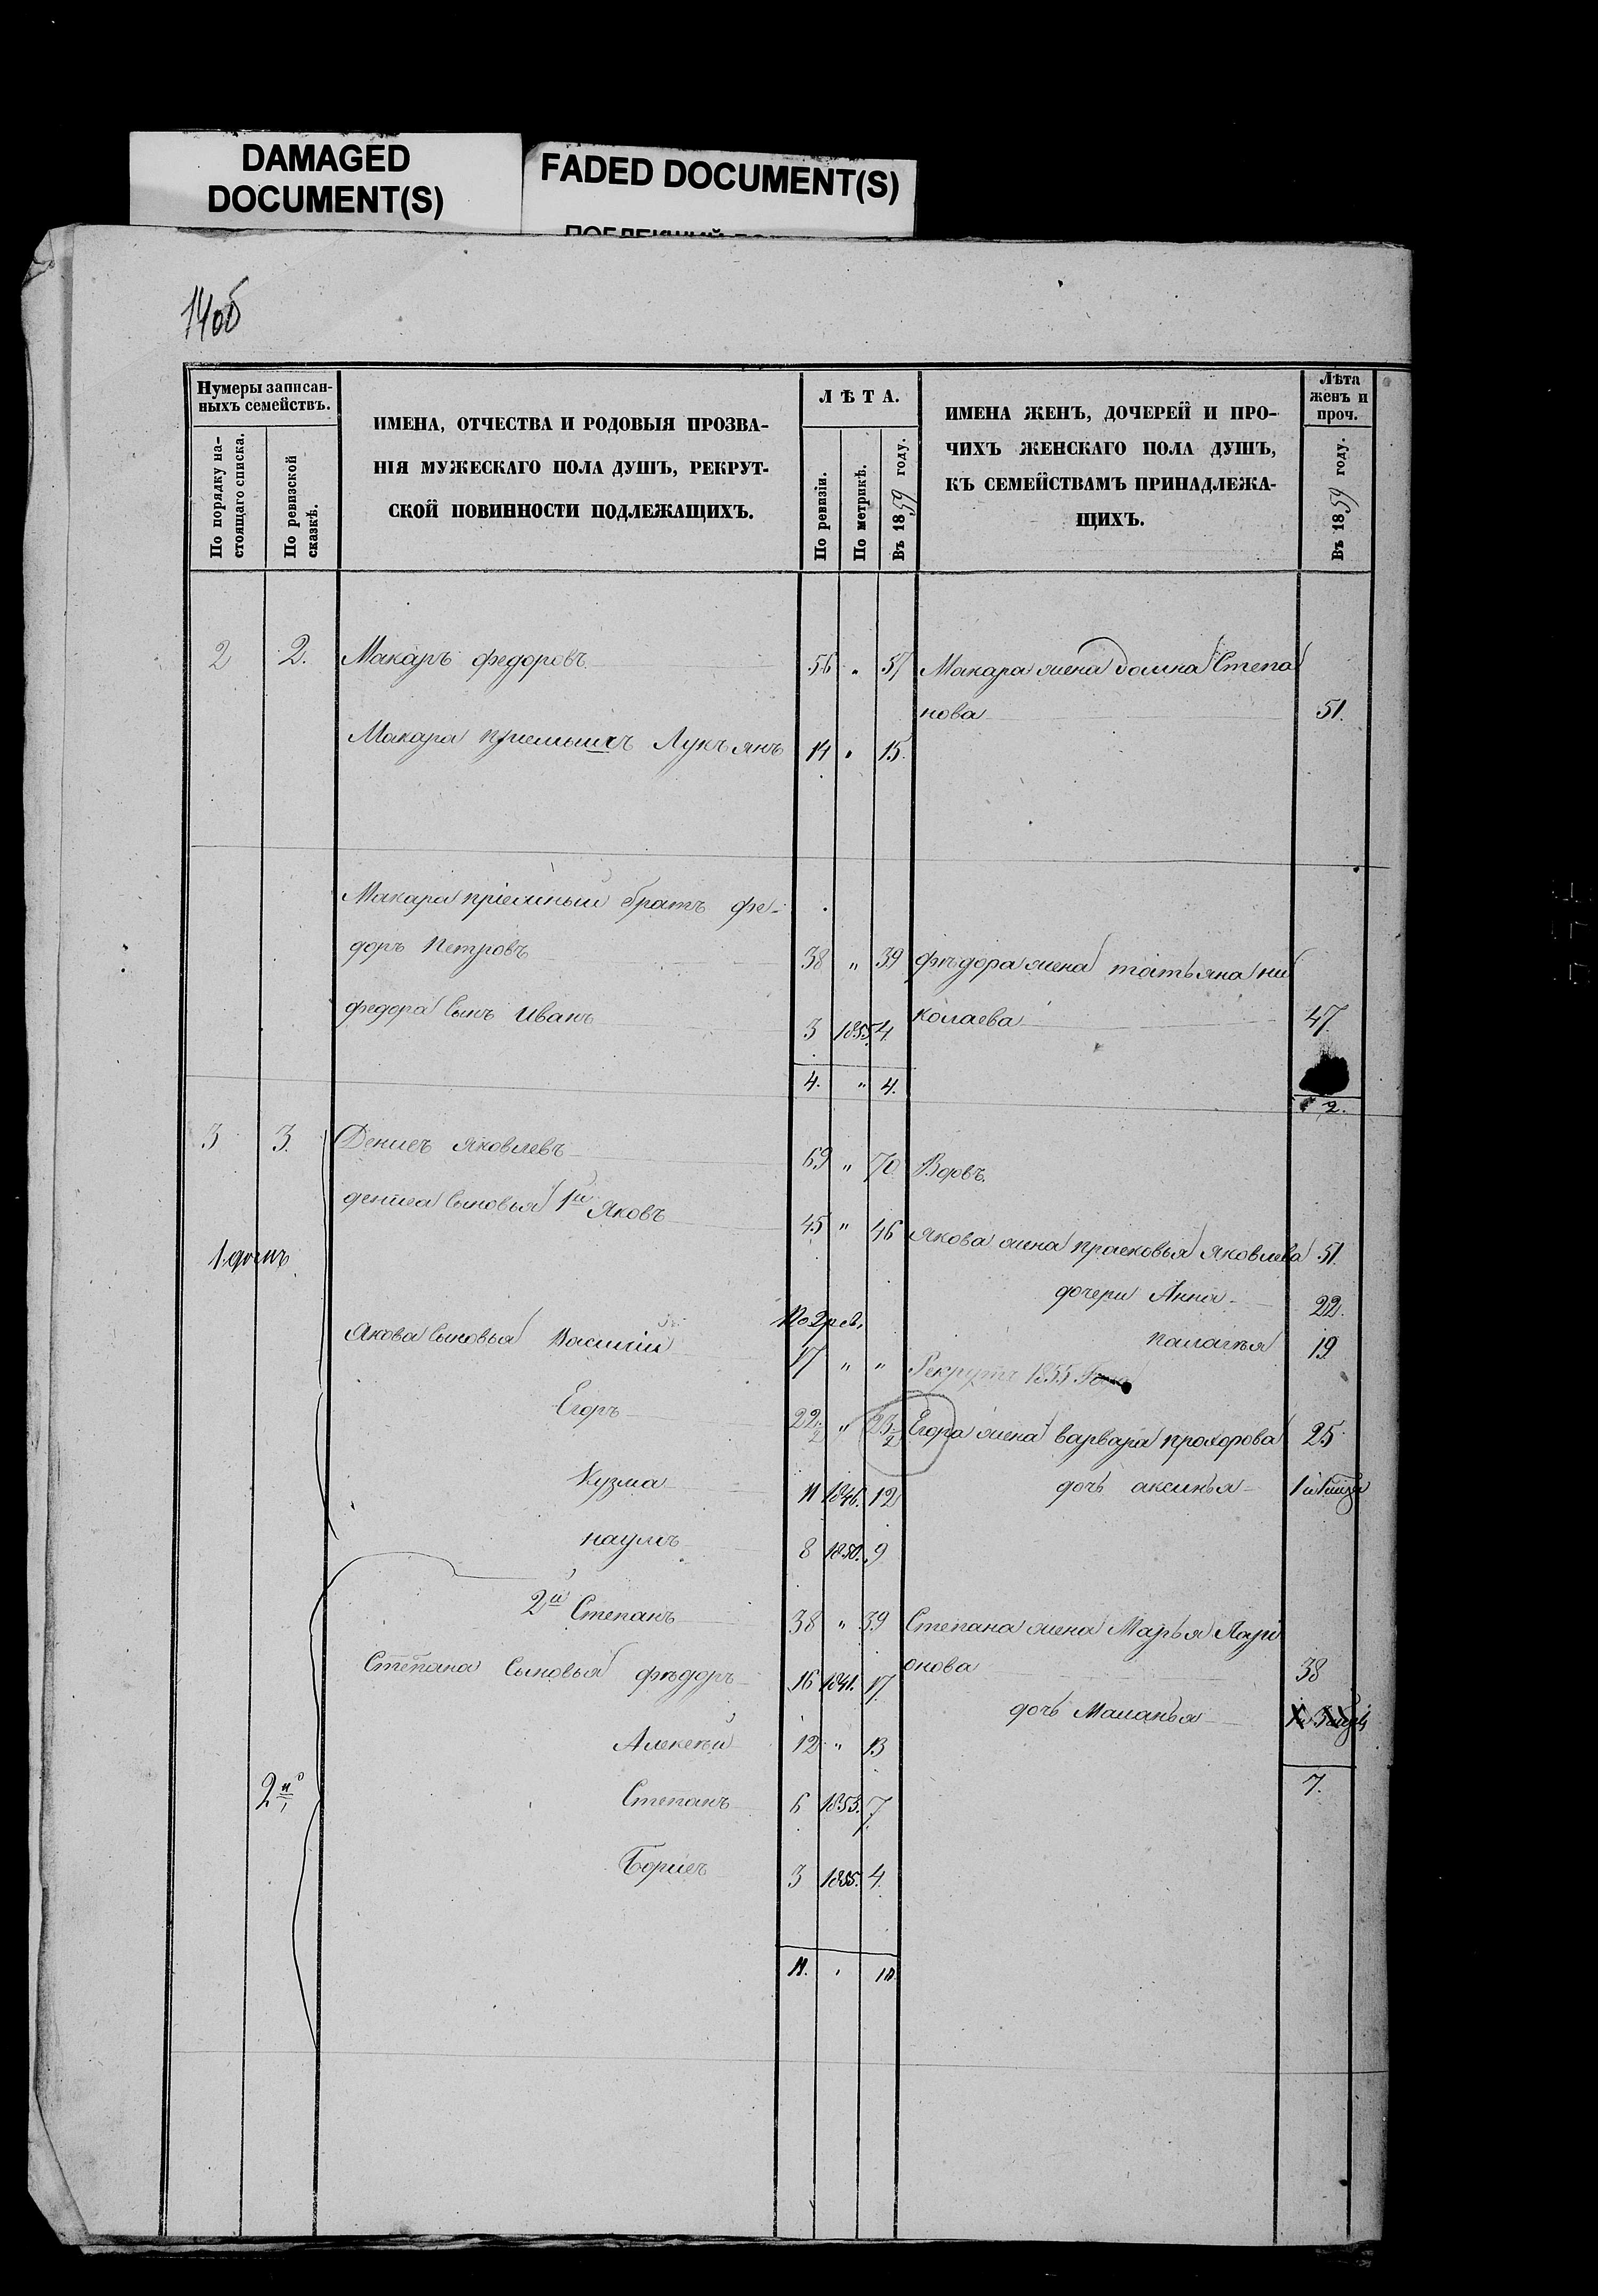 DAMAGED
DOCUMENT(S)
FADED DOCUMENT(S)
14об
Нумеры записан-
ныхъ семействъ.
По порядку на-
стоящаго списка.
По ревизской
сказкѣ.
ИМЕНА, ОТЧЕСТВА И РОДОВЫЯ ПРОЗВА-
НІЯ МУЖЕСКАГО ПОЛА ДУШЪ, РЕКРУТ-
СКОЙ ПОВИННОСТИ ПОДЛЕЖАЩИХЪ.
ЛѢТА.
По ревизіи.
По метрикѣ.
Въ 1859 году.
ИМЕНА ЖЕНЪ, ДОЧЕРЕЙ И ПРО-
ЧИХЪ ЖЕНСКАГО ПОЛА ДУШЪ,
КЪ СЕМЕЙСТВАМЪ ПРИНАДЛЕЖА-
ЩИХЪ.
Лѣта
женъ и
проч.
Въ 1859 году.
2 2. Макаръ федоровъ 56 " 57 Макара жена домна Степа
нова 51.
Макара приемышъ Лукъянъ 14 " 15.
Макара пріемный братъ фе-
доръ Петровъ 38 " 39 фѣдора жена татьяна ни
федора Сынъ иванъ 3 1855 4 колаева 47
4. " 4.
2.
3 3. Денисъ яковлевъ 69 " 70 Вдовъ.
дениса Сыновья 1й Яковъ 45 " 46 якова жена прасковья яковлева 51.
1. домъ
дочери Анна 22.
По 9 рев.
Якова Сыновья Василий 17 " " пелагѣя 19
Рекрутъ 1855 Года
Егоръ 22 1/2 " 23 1/2 Егора жена варвара прохорова 25
Кузма 11 1846. 12 дочь аксинья
наумъ 8 1850. 9
2й Степанъ 38 " 39 Степана жена Марья Лари
онова 38
Степана Сыновья фѣдоръ 16 1841. 17.
дочь Маланья
Алексѣй 12 " 13
2й Степанъ 6 1853. 7 7.
Борисъ 3 1855. 4.
11. " 10